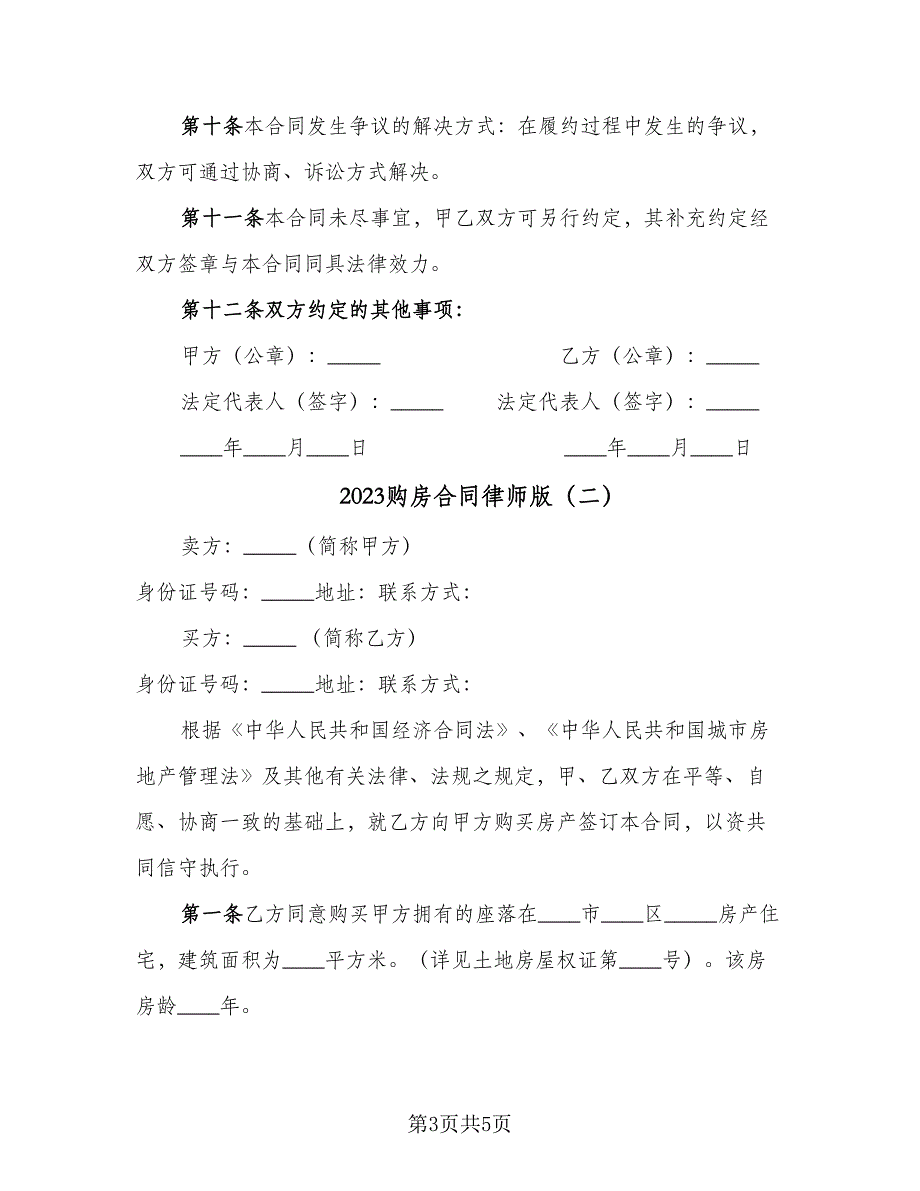 第十条本合同发生争议的解决方式：在履约过程中发生的争议，
双方可通过协商、诉讼方式解决。
第十一条本合同未尽事宜，甲乙双方可另行约定，其补充约定经
双方签章与本合同同具法律效力。
第十二条双方约定的其他事项：
甲方（公章）：_____ 乙方（公章）：_____
法定代表人（签字）：_____ 法定代表人（签字）：_____
____年____月____日 ____年____月____日
2023购房合同律师版（二）
卖方：_____（简称甲方）
身份证号码：_____地址：联系方式：
买方：_____ （简称乙方）
身份证号码：_____地址：联系方式：
根据《中华人民共和国经济合同法》、《中华人民共和国城市房
地产管理法》及其他有关法律、法规之规定，甲、乙双方在平等、自
愿、协商一致的基础上，就乙方向甲方购买房产签订本合同，以资共
同信守执行。
第一条乙方同意购买甲方拥有的座落在____市____区_____房产住
宅，建筑面积为____平方米。（详见土地房屋权证第____号）。该房
房龄____年。
第3页共5页